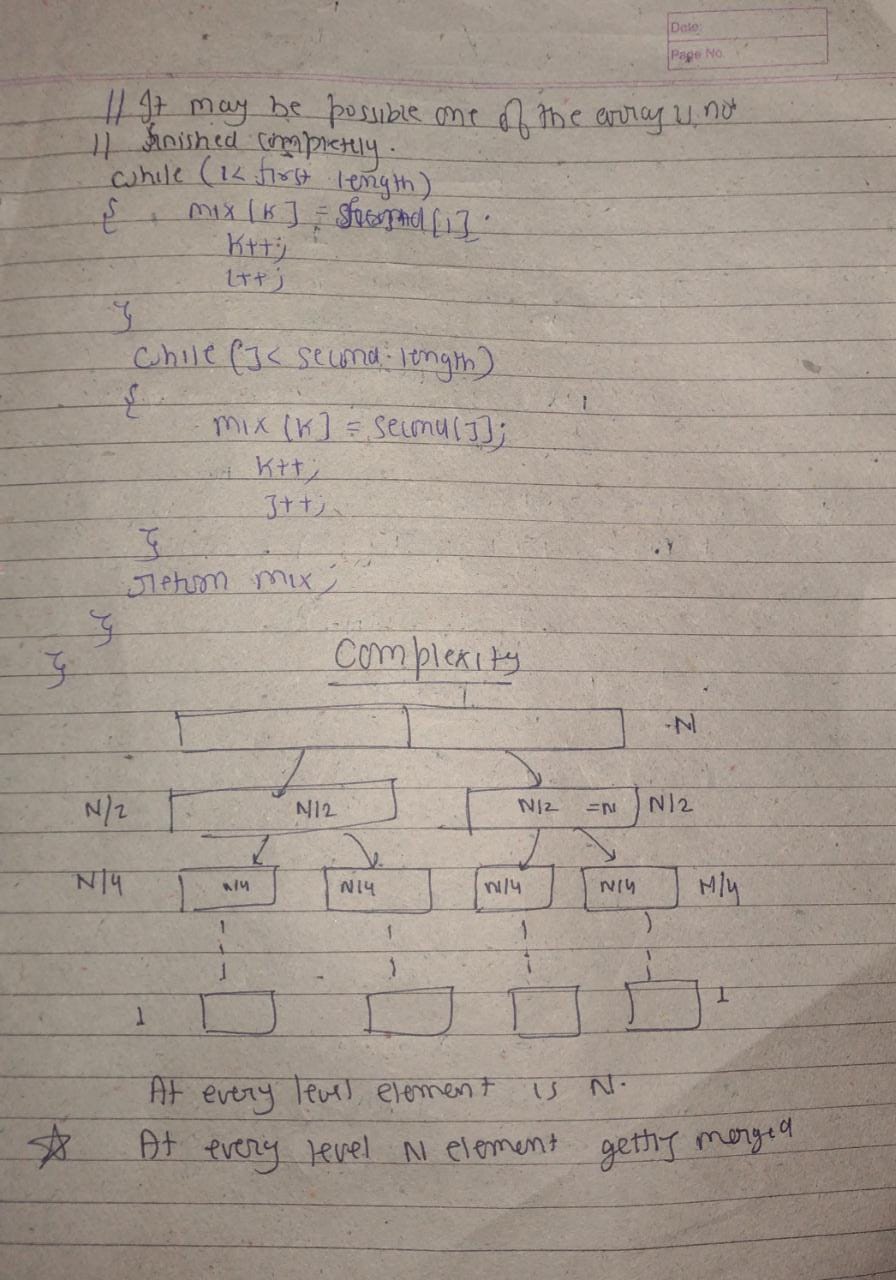 Date:
Page No.
// It may be possible one of the array is not
// finished completely.
while (i< first length)
{ mix [K] = [i].
K++;
i++;
}
while (J< second.length)
{
mix [K] = second[J];
K++;
J++;
}
return mix;
}
}
Complexity
N
N/2 N/2 N/2 =N N/2
N/4 N/4 N/4 N/4 N/4 N/4
1 1
At every level element is N.
☆ At every level N element getting merged